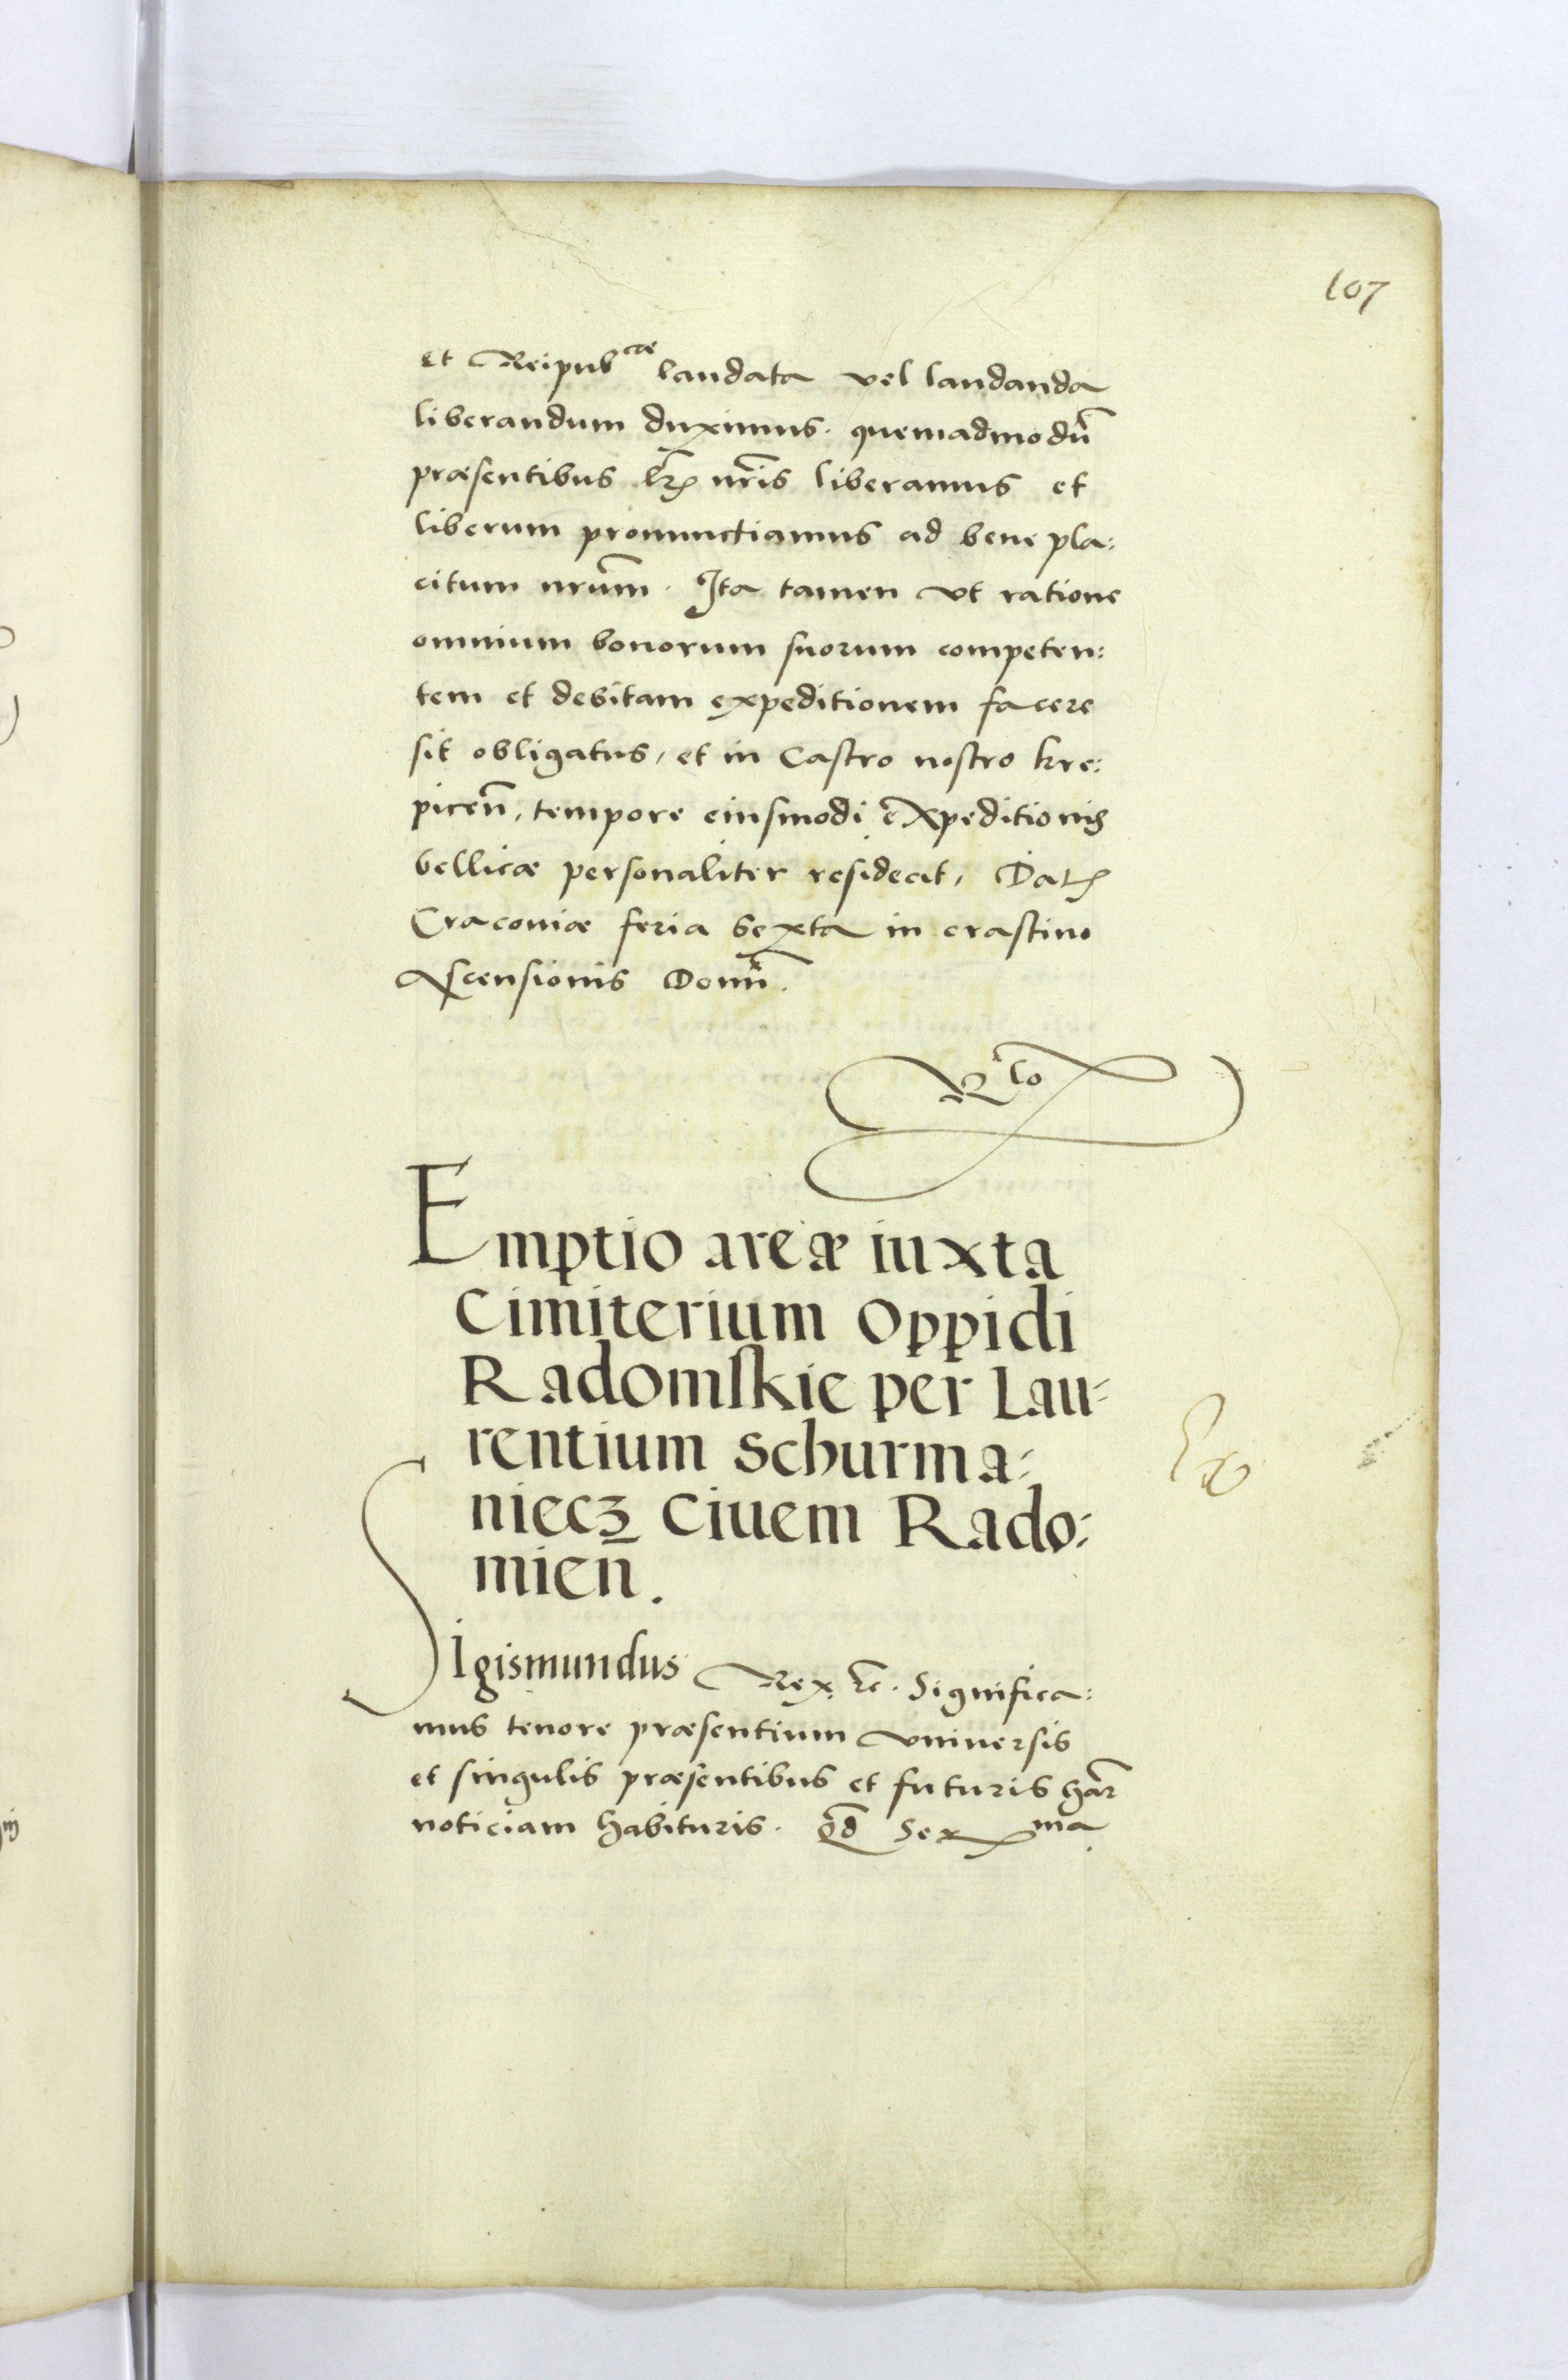 107
et Reipub^cae laudata vel laudanda
liberandum duximus. quemadmodū
præsentibus lr̄is nr̄is liberamus et
liberum pronunctiamus ad bene pla:
citum nrūm. Ita tamen vt ratione
omnium bonorum suorum competen:
tem et debitam expeditionem facere
sit obligatus, et in Castro nostro kre:
picen̄, tempore eiusmodi expeditionis
bellicæ personaliter resideat, Dat
Cracoviæ feria sexta in crastino
Ascensionis Domī.
Emptio areæ iuxta
Cimiterium Oppidi
Radomskie per Lau:
rentium Schurma:
niecz Ciuem Rado:
mien̄.
Sigismundus Rex etc. Significa:
mus tenore præsentium vniuersis
et singulis præsentibus et futuris har̄
noticiam habituris. Qd̄ Ser^ma